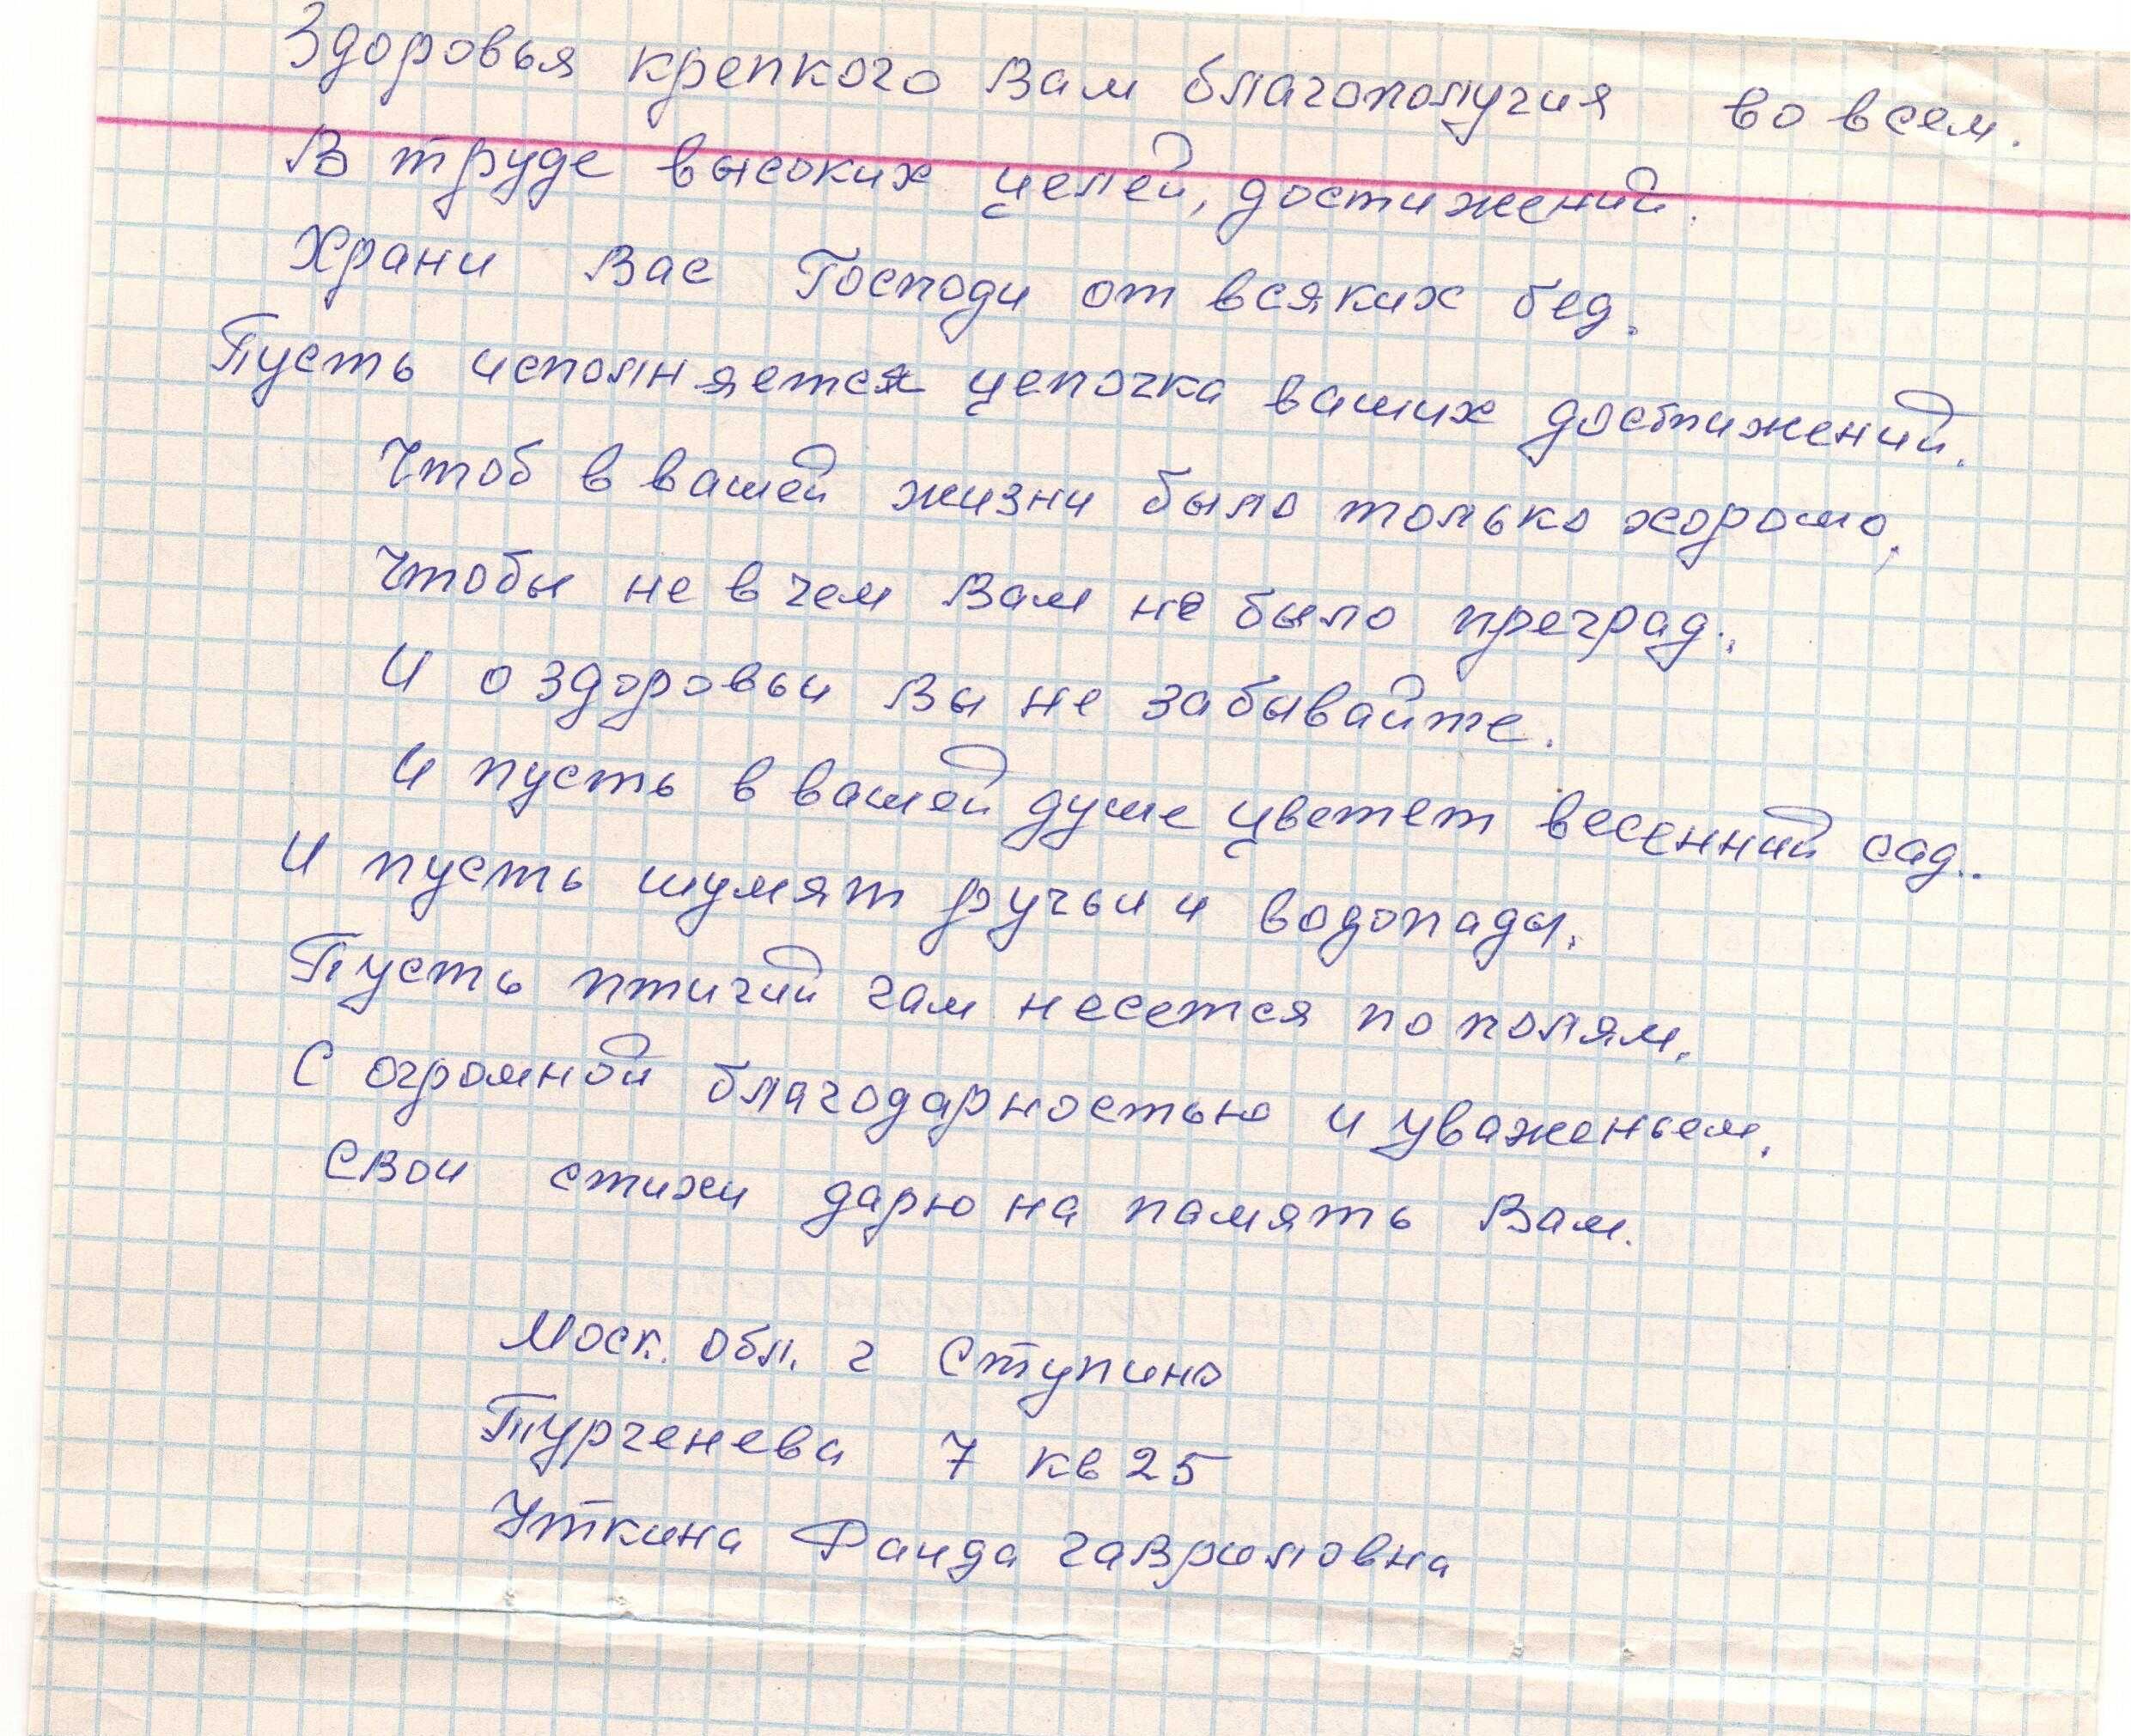 Здоровья крепкого Вам благополучия во всем.
В труде высоких целей, достижений.
Храни Вас Господи от всяких бед.
Пусть исполняется цепочка ваших достижений.
Чтоб в вашей жизни было только хорошо,
Чтобы не в чем Вам не было преград.
И о здоровьи Вы не забывайте.
И пусть в вашей душе цветет весенний сад..
И пусть шумят ручьи и водопады.
Пусть птичий гам несется по полям.
С огромной благодарностью и уваженьем.
Свои стихи дарю на память Вам.
Моск. обл. г Ступино
Тургенева 7 кв 25
Уткина Фаида Гавриловна